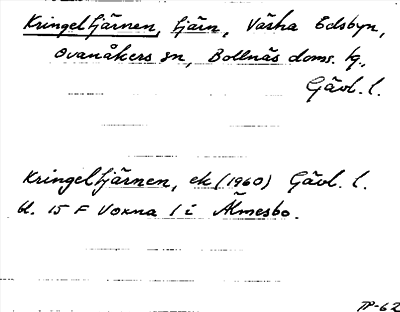 Kringeltjärnen, tjärn, Västra Edsbyn,
Ovanåkers sn, Bollnäs doms. tg.,
Gävl. l.
Kringeltjärnen, ek (1960) Gävl. l.
bl. 15 F Voxna 1 i Älmesbo.
TP-62